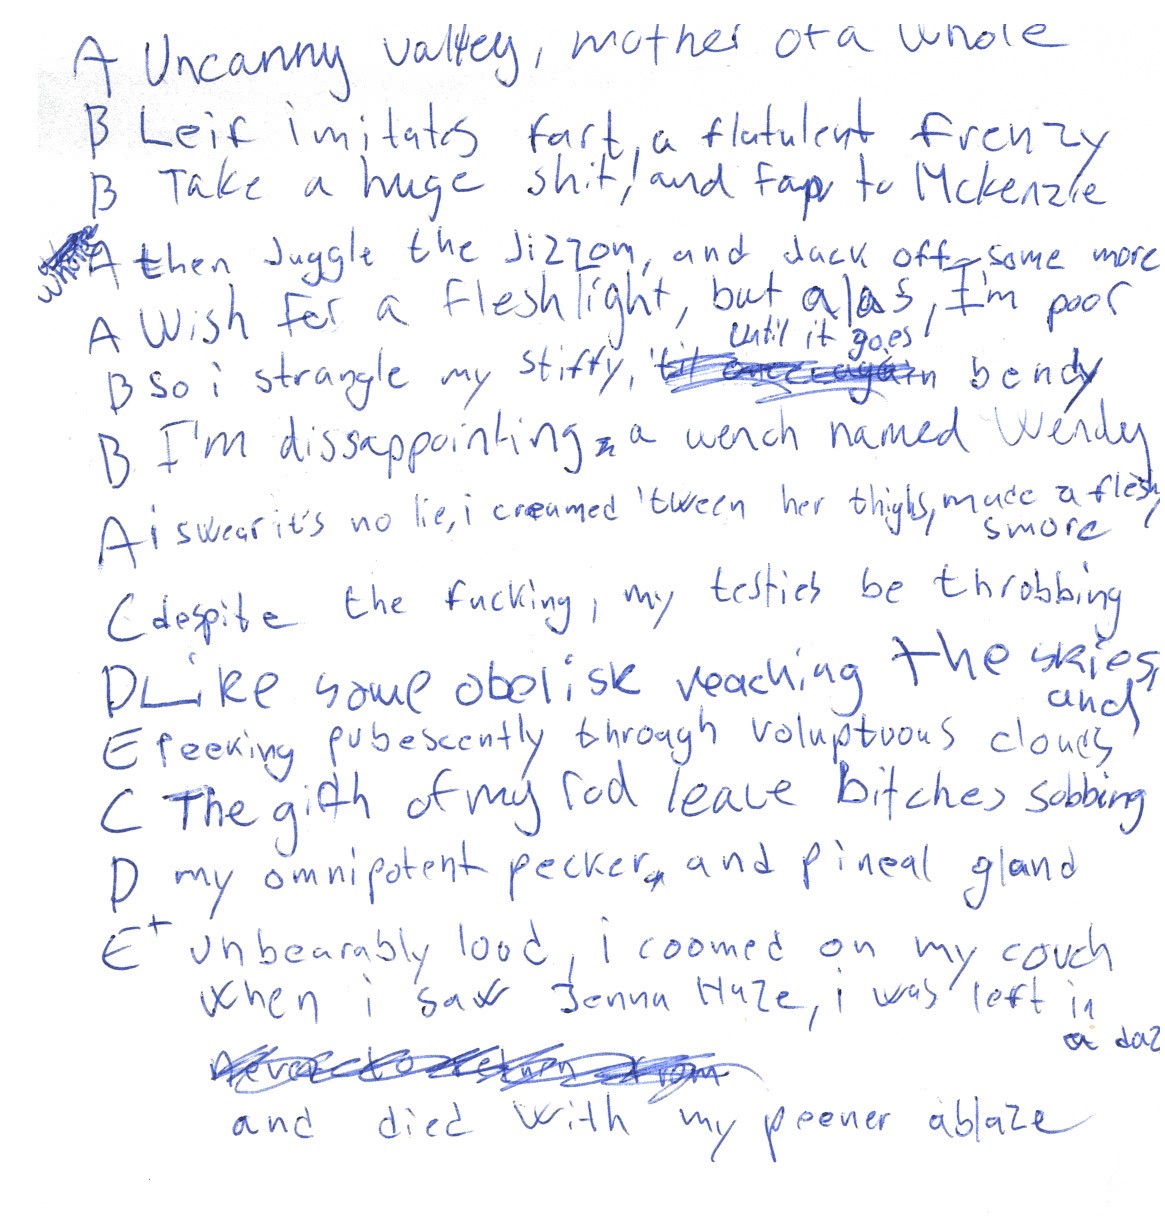 A Uncanny valley, mother of a whole
B Leif imitates fart, a flatulent frenzy
B Take a huge shit, and fap to Mckenzie
whore A then Juggle the Jizzom, and Jack off some more
A Wish for a fleshlight, but alas, I'm poor
until it goes
B so i strangle my stiffy, bendy
B I'm dissappointing a wench named Wendy
A i swear it's no lie, i creamed 'tween her thighs, made a fleshy
smore
C despite the fucking, my testies be throbbing
D Like some obelisk reaching the skies,
and
E Peeking pubescently through voluptuous clouds
C The gifth of my rod leave bitches sobbing
D my omnipotent pecker, and pineal gland
E+ unbearably loud, i coomed on my couch
when i saw Jenna Haze, i was left in
a daz
and died with my peener ablaze